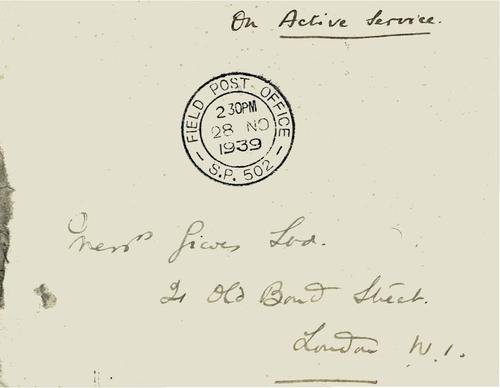 On Active Service.
FIELD POST OFFICE
2 30PM
28 NO
1939
S.P. 502
Messrs Gieves Ltd.
21 Old Bond Street.
London W.1.